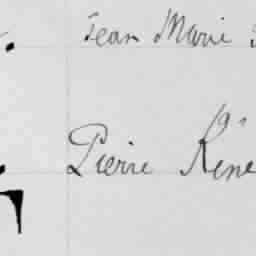 Jean Marie
Pierre René